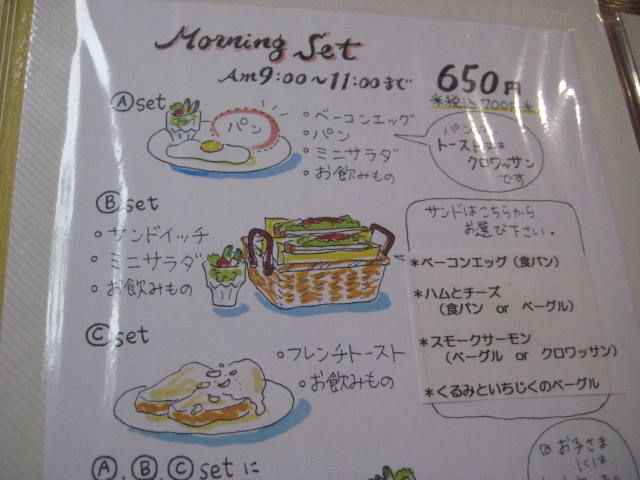 Morning Set
Am9:00～11:00まで
650円
*税込700円*
Ⓐset
パン
・ベーコンエッグ
・パン
・ミニサラダ
・お飲みもの
パンは、
トースト
クロワッサン
です
Ⓑset
・サンドイッチ
・ミニサラダ
・お飲みもの
サンドはこちらから
お選び下さい。
*ベーコンエッグ（食パン）
*ハムとチーズ
（食パン or ベーグル）
*スモークサーモン
（ベーグル or クロワッサン）
*くるみといちじくのベーグル
Ⓒset
・フレンチトースト
・お飲みもの
Ⓐ,Ⓑ,Ⓒsetに
お子さま
には、